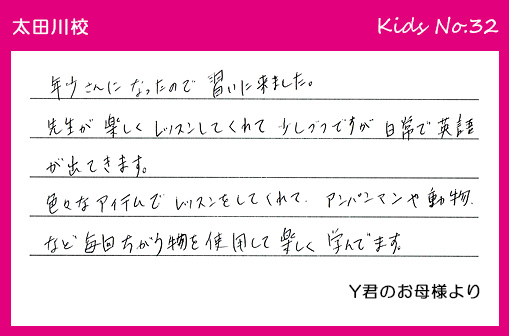 太田川校
Kids No.32
年少さんになったので 習いに来ました。
先生が 楽しく レッスンしてくれて 少しづつですが 日常で 英語
が出てきます。
色々な アイテムで レッスンをしてくれて、アンパンマンや 動物、
など 毎回ちがう物を 使用して 楽しく 学んでます。
Y君のお母様より